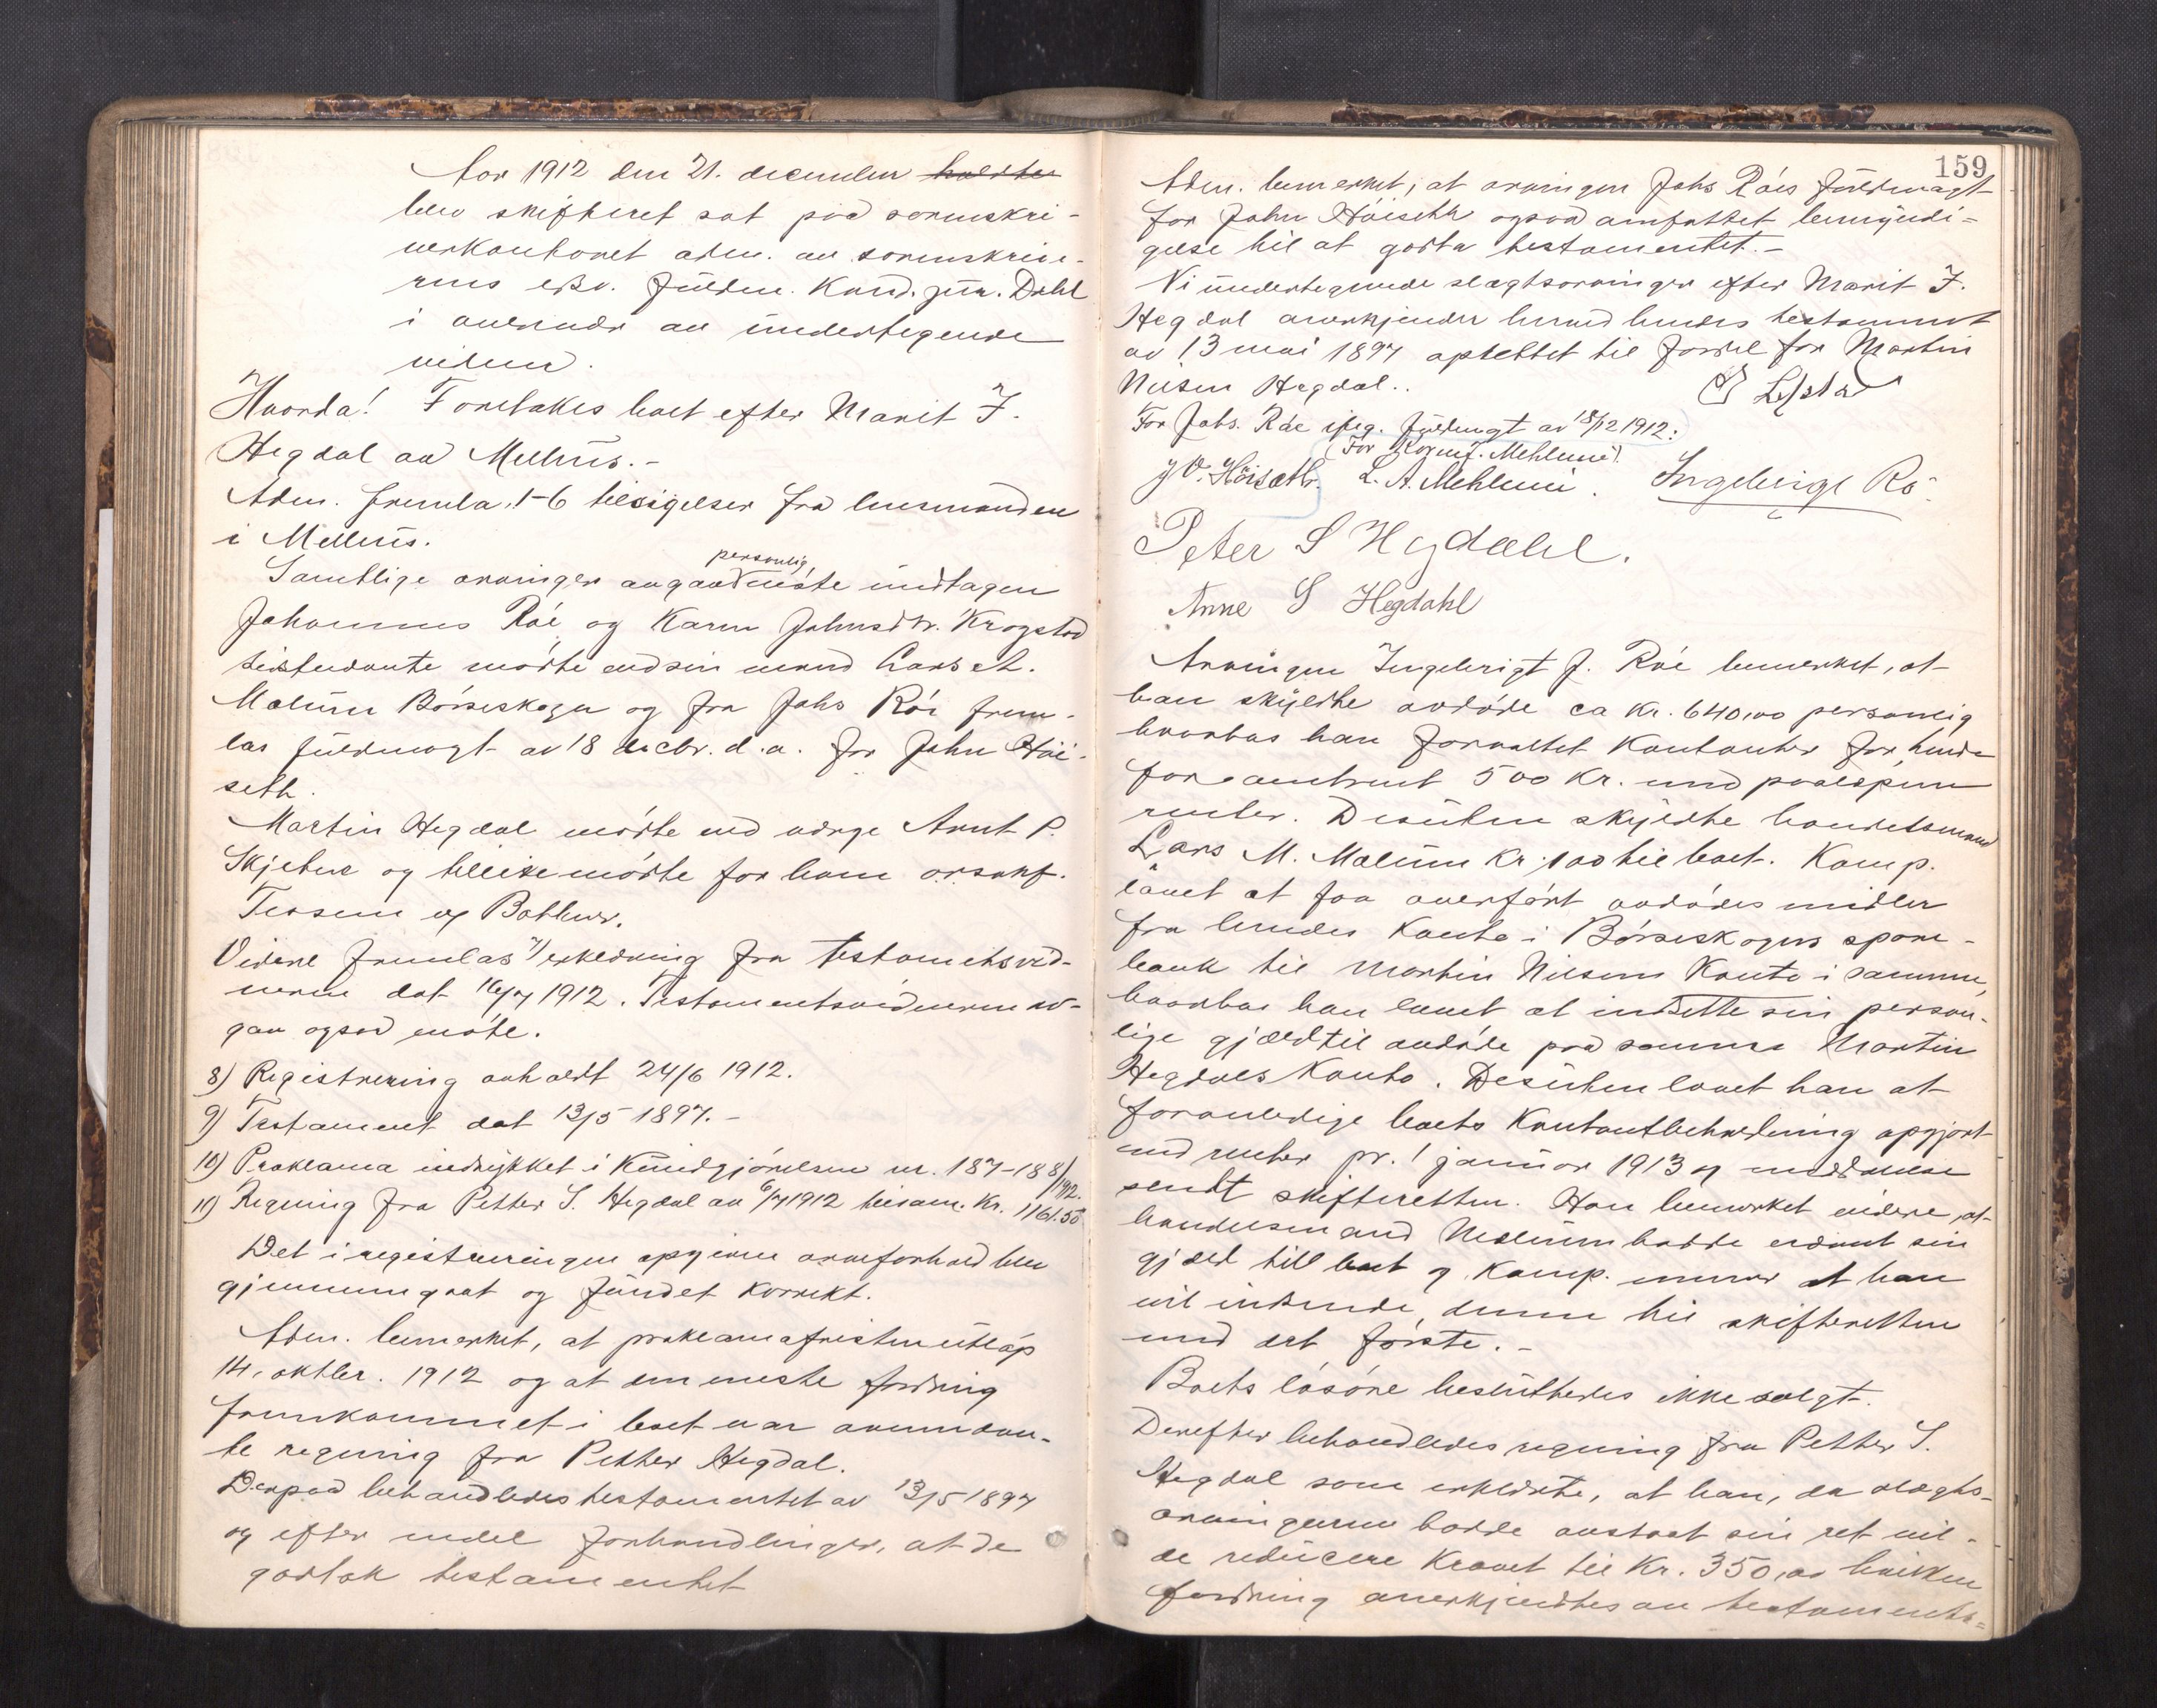 Aar 1912 den 21. december holdtes
blev skifteret sat paa sorenskri-
verkontoret adm. av sorenskrive-
rens edsv. fuldm. Kand. jur. Dahl
i overvær av undertegnede
vidne.
Hvorda! Foretakes boet efter Marit J.
Hegdal av Melhus.-
Adm. fremla 1-6 tilsigelser fra lensmanden
i Melhus.
personlig
Samtlige arvinger angav møte undtagen
Johannes Røe og Karen Johnsdtr. Krogstad
sidstnævnte møtte ved sin mand Lars A.
Melum Børseskogn og fra Johs Røe frem-
las fuldmagt av 18 decbr. d.a. for John Høi-
seth.
Martin Hegdal møtte ved verge Arnt P.
Skjetne og tillike møtte for ham orsakf.
Tiesem og Bathen.
Videre fremlas 7) erklæring fra testamentsvid-
nerne dat 16/7 1912. Testamentsvidnerne av-
gav ogsaa møte.
8) Registrering avholdt 24/6 1912.
9) Testament dat 13/5 1897.-
10) Proklama indrykket i Kundgjørelsen nr. 187-188/1912.
11) Regning fra Petter S. Hegdal av 6/7 1912 tilsam. Kr. 1161.50
Det i registreringen opgivne arveforhold blev
gjennemgaat og fundet korrekt.
Adm. bemerket, at proklamafristen utløp
14. oktbr. 1912 og at den eneste fordring
fremkommet i boet var ovennævn-
te regning fra Petter Hegdal.
Derpaa behandledes testamentet av 13/5 1897
og efter endel forhandlinger, at de
godtok testamentet
159
Adm. bemerket, at arvingen Johs Røes fuldmagt
for John Høiseth ogsaa omfattet bemyndi-
gelse til at godta testamentet.-
Vi undertegnede slægtsarvinger efter Marit J.
Hegdal anerkjender herved hendes testament
av 13 mai 1897 oprettet til fordel for Martin
Nilsen Hegdal..
For Johs. Røe ifølg. fuldmagt av 18/12 1912:
For Karen J. Mehlum.
J O. Høiseth. L. A. Mehlum. Ingebrigt Rø
Peter S Hegdahl.
Anne S Hegdahl
Arvingen Ingebrigt J. Røe bemerket, at
han skyldte avdøde ca Kr. 640,00 personlig
hvorhos han forvaltet kontanter for hende
for omtrent 500 Kr. med paaløpne
renter. Desuten skyldte handelsmand
Lars M. Melum Kr. 100 til boet. Komp.
lovet at faa overført avdødes midler
fra hendes konto i Børseskogns spare-
bank til Martin Nilsens konto i samme,
hvorhos han lovet at indsette sin person-
lige gjæld til avdøde paa samme Martin
Hegdals konto. Desuten lovet han at
foranledige boets kontantbeholdning opgjort
med renter pr. 1 januar 1913 og meddelelse
sendt skifteretten. Han bemerket videre, at
handelsmand Melum hadde erkjent sin
gjæld till boet og komp. mener at han
vil indsende denne til skifteretten
med det første.-
Boets løsøre besluttedes ikke solgt.
Derefter behandledes regning fra Petter S.
Hegdal som erklærte, at han, da slægts-
arvingerne hadde avstaat sin ret vil-
de reducere kravet til Kr. 350,00 hvilken
fordring anerkjendtes av testaments-